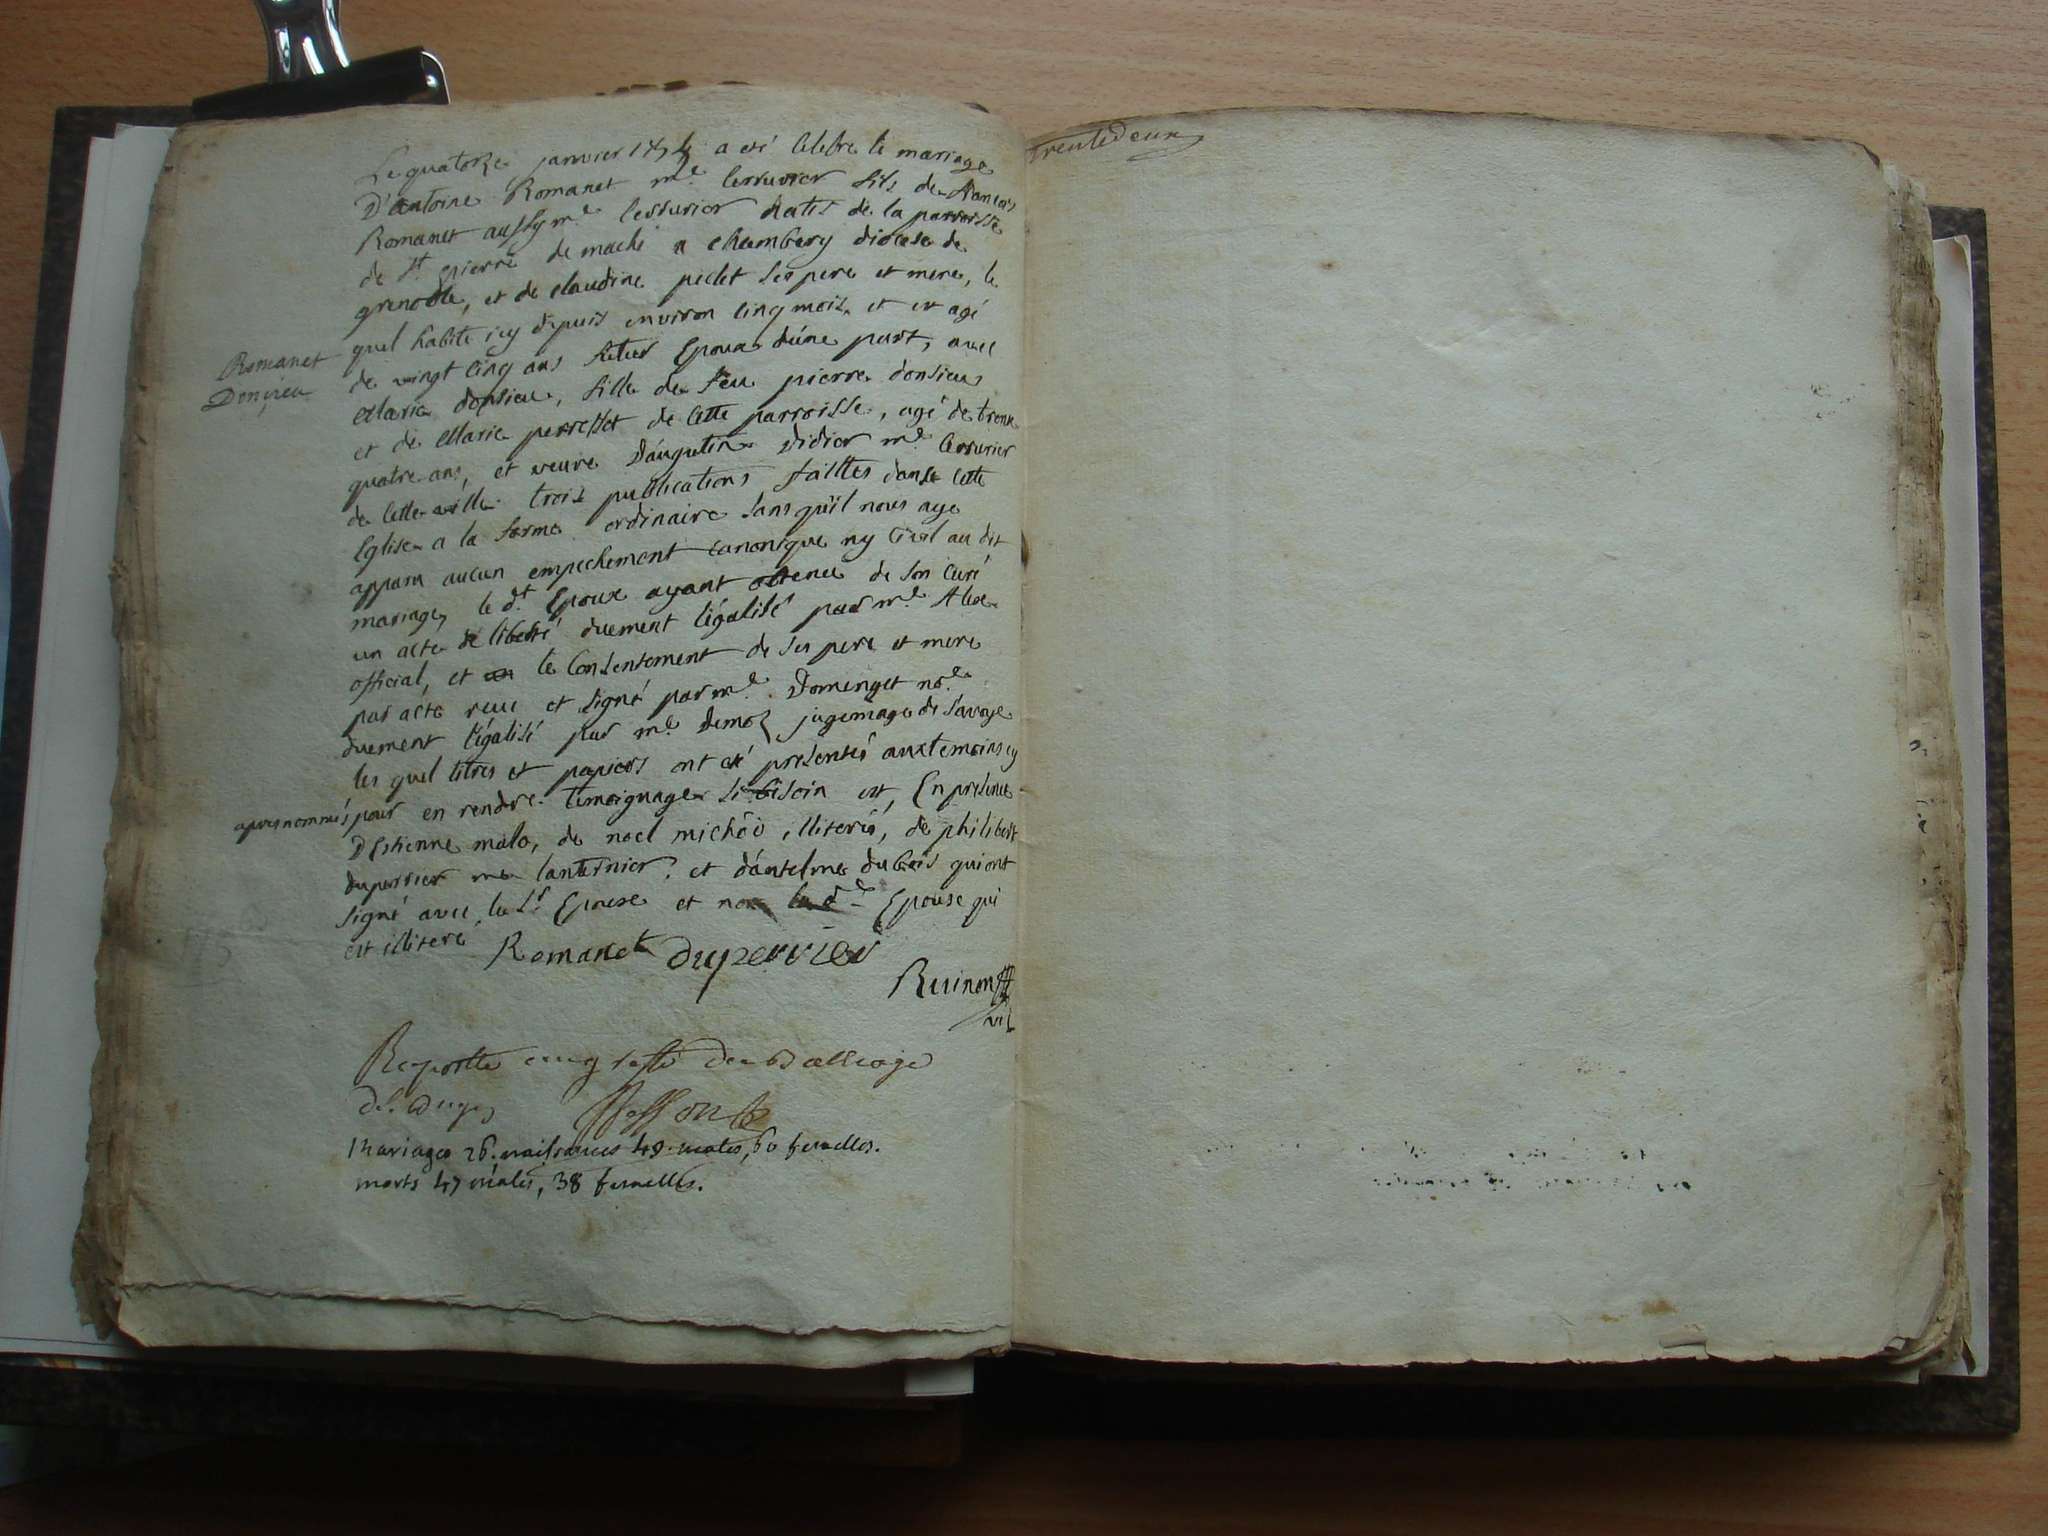 Le quatorze janvier a été Celebre le mariage
D'antoine Romanet m.e Cerrurier fils de francois
Romanet aussy m.e Cerrurier natif de la parroisse
de S.t pierre de maché a chambery diocese de
grenoble, et de claudine peclet ses pere et mere, le
quel habite icy depuis environ cinq mois, et est agé
de vingt cinq ans futur Epoux d'une part, avec
Romanet
Donsieu
Marie donsieu, fille de feu pierre donsieu
et de Marie perresset de cette parroisse, agé de trente
quatre ans, et veuve d'augustin didier m.e Cerrurier
de cette ville. trois publications faittes dans cette
Eglise a la forme ordinaire sans qu'il nous aye
apparu aucun empechement canonique ny Civil au dit
mariage, le d.t Epoux ayant obtenu de son curé
un acte de liberté duement légalisé par m.e
official, et le Consentement de ses pere et mere
par acte recu et signé par m.e Domenget no.re
duement légalisé par m.e demoz jugemage de Savoye
les quel titres et papiers ont été presentés aux temoins cy
apres nommés pour en rendre temoignage si besoin est, En presence
D'Estienne malo, de noel michôo illiterés, de philibert
duperrier lanternier, et d'antelme dubois qui ont
signé avec le S.r Epoux et non la d.e Epouse qui
est illiteré Romanet Duperrier
mariages 26. naissances 49 males, 60 femelles.
morts 47 males, 38 femelles.
trentedeux